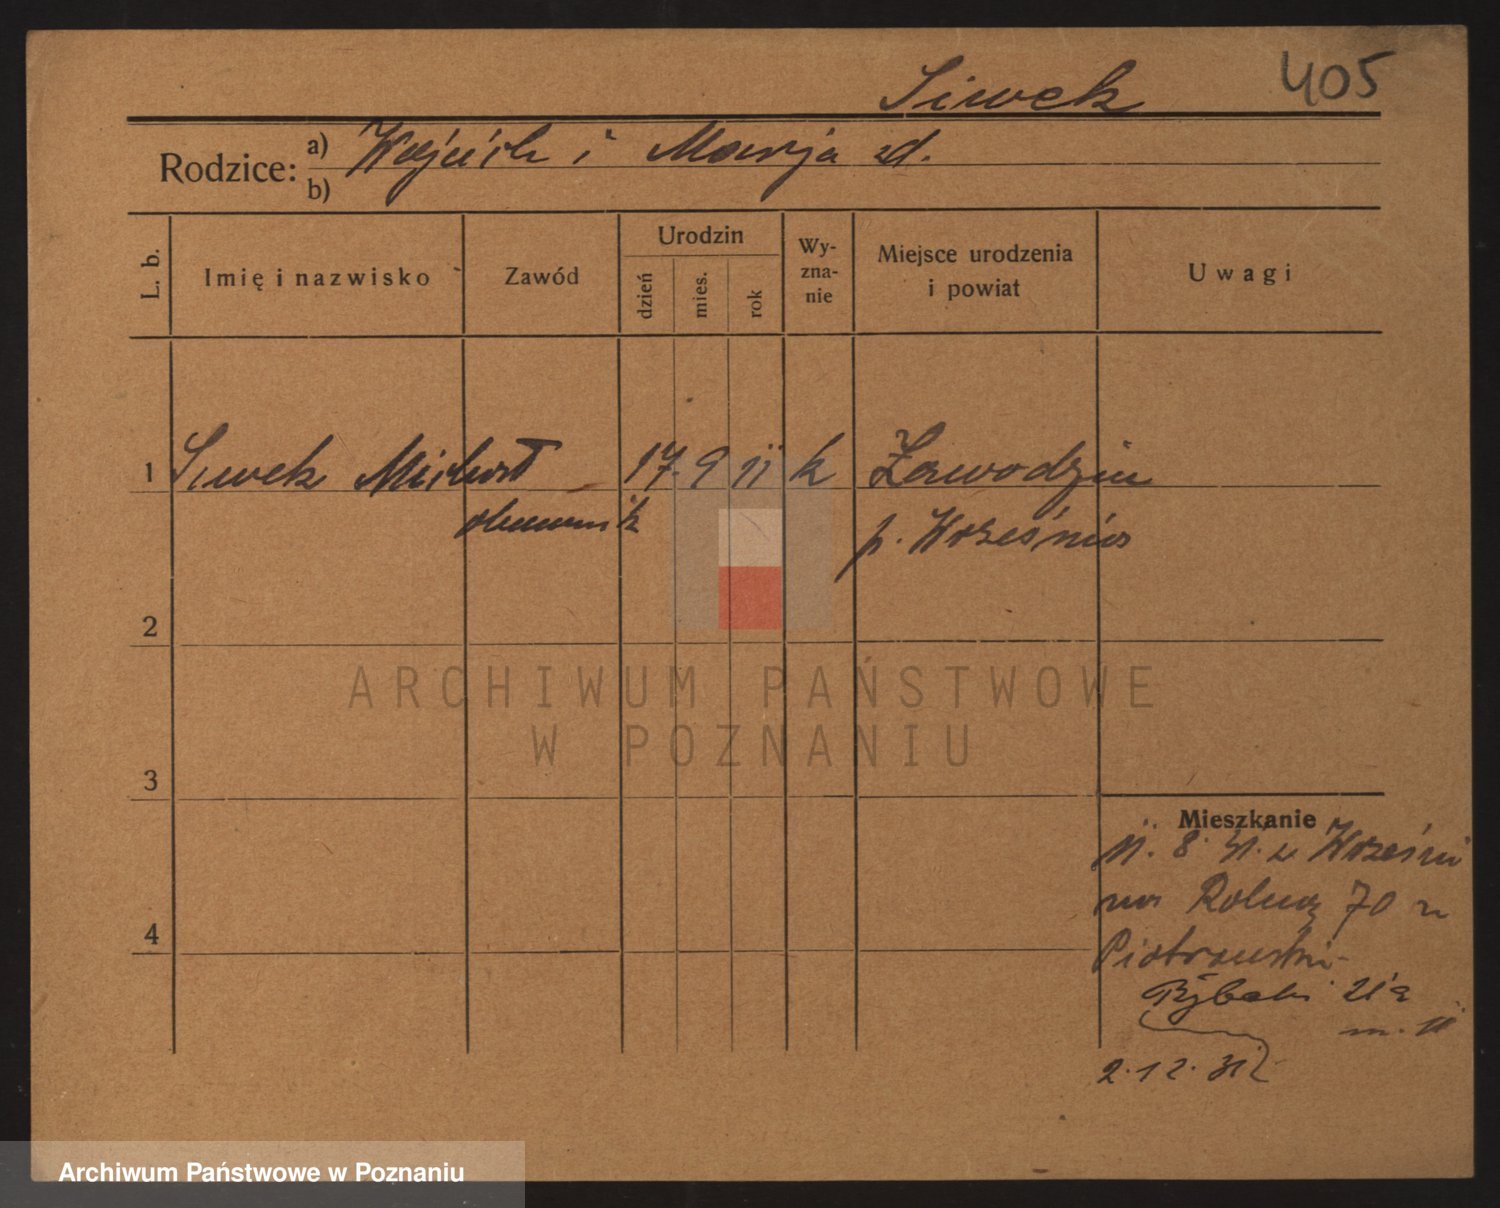 Siwek 405
Rodzice: a) Wojciech i Marja zd.
b)
L. b. Imię i nazwisko Zawód Urodzin dzień mies. rok Wy-zna-nie Miejsce urodzenia i powiat Uwagi
1 Siwek Michał 17. 9 11 k Zawodzie
p. Września
2
ARCHIWUM PAŃSTWOWE
W POZNANIU
3
Mieszkanie
11. 8. 31. z Wrześni
4
70
Piotrowski
Rybaki 21a
m. 11
2.12.31
Archiwum Państwowe w Poznaniu